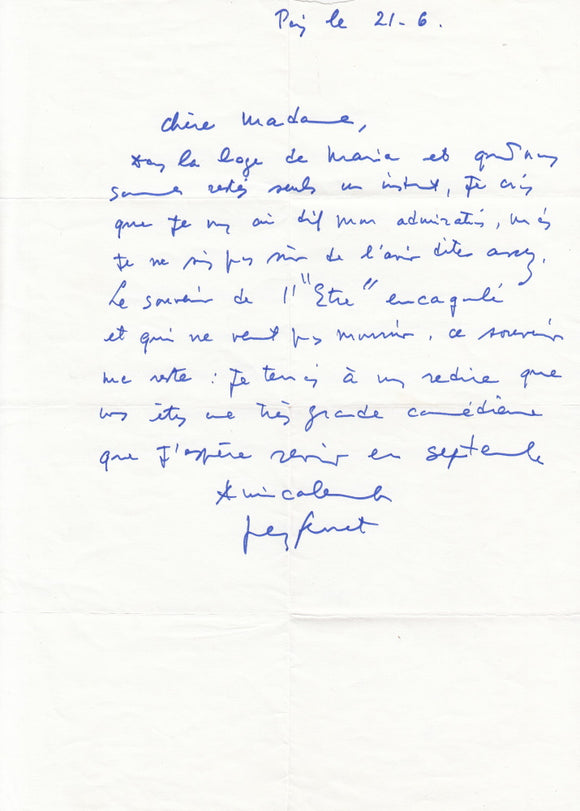 Paris le 21-6.
Chère Madame,
Dans la loge de Maria et quand nous
sommes restés seuls un instant, je crois
que je vous ai dit mon admiration, mais
je ne suis pas sûr de l'avoir dite assez.
Le souvenir de l'"Etre" encagoulé
et qui ne veut pas mourir, ce souvenir
me reste : je tenais à vous redire que
vous êtes une très grande comédienne
que j'espère revoir en septembre
Amicalement